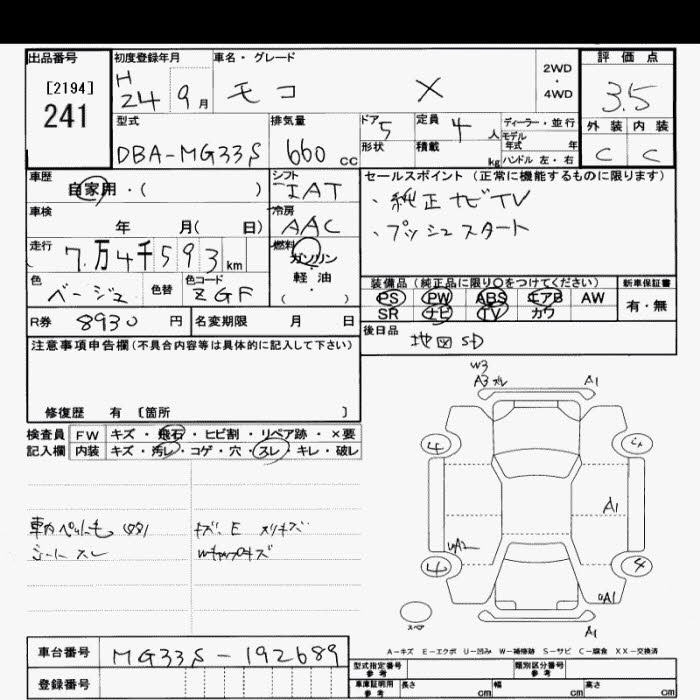 出品番号 初度登録年月 車名・グレード 2WD・4WD 評価点
[2194] 241
H 24 9月 モコ X 3.5
型式 排気量 ドア 5 定員 4人 ディーラー・並行 外装 内装
DBA-MG33S 660cc 形状 積載 kg モデル年式 年 ハンドル 左・右 C C
車歴 シフト セールスポイント (正常に機能するものに限ります)
自家用・( ) IAT ・純正ナビTV
車検 年 月( 日) 冷房 AAC ・プッシュスタート
走行 7万4千593km 燃料 ガソリン・軽油・( )
色 ベージュ 色替 色コード ZGF
装備品 (純正品に限り○をつけてください) 新車保証書
PS PW ABS エアB AW 有・無
SR ナビ TV カワ
R券 8930円 名変期限 月 日 後日品 地図SD
注意事項申告欄(不具合内容等は具体的に記入して下さい)
修復歴 有 〔箇所 〕
検査員 FW キズ・飛石・ヒビ割・リペア跡・×要
記入欄 内装 キズ・汚レ・コゲ・穴・スレ・キレ・破レ
W3
A3 A1
4
A1
A2
4
A1
スペア A1
シートスレ
A-キズ E-エクボ U-凹み W-補修跡 S-サビ C-腐食 XX-交換済
車台番号 MG33S-192689
登録番号
型式指定番号 参考 類別区分番号 参考
車庫証明用 参考 長さ cm 幅 cm 高さ cm